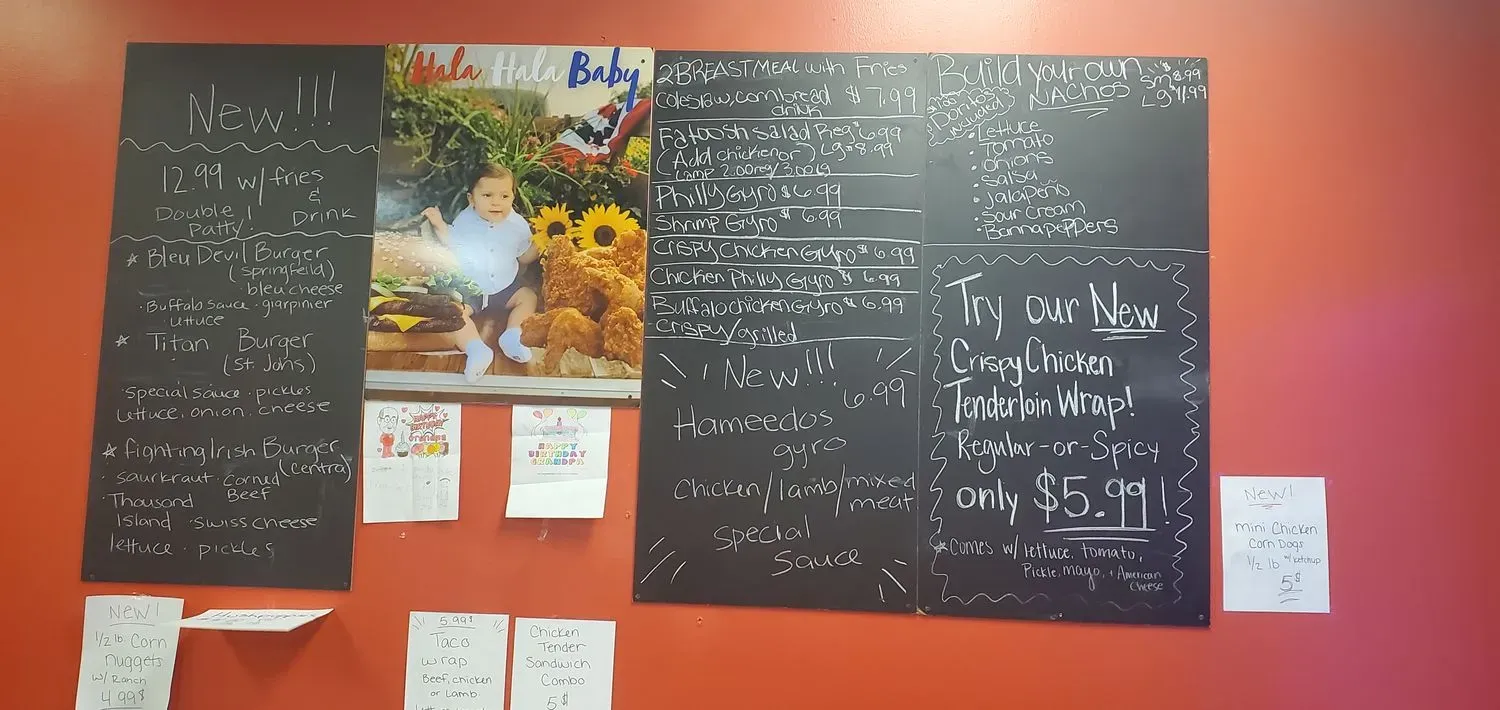 New!!!
12.99 w/ fries
&
Double Drink
Patty!
Bleu Devil Burger
(springfeild)
· bleu cheese
· Buffalo sauce · giarpinier
· lettuce
Titan Burger
(St. Johns)
· special sauce · pickles
lettuce, onion, cheese
fighting Irish Burger
(Central)
· saurkraut · Corned
Beef
· Thousand
Island · Swiss cheese
lettuce · pickles
Hala Hala Baby
HAPPY
BIRTHDAY
Grandpa
HAPPY
BIRTHDAY
GRANDPA
2 BREAST MEAL with Fries
coleslaw, cornbread $7.99
drink
Fatoosh Salad Reg $6.99
(Add chicken or) Lg $8.99
Lamp 2.00 reg/3.00 lg
Philly Gyro $6.99
Shrimp Gyro $6.99
Crispy Chicken Gyro $6.99
Chicken Philly Gyro $6.99
Buffalo chicken Gyro $6.99
Crispy/grilled
New!!!
6.99
Hameedos
gyro
Chicken/lamb/mixed
meat
special
sauce
Build your own
NACHOS
Sm $8.99
Lg $11.99
Doritos
included
· Lettuce
· Tomato
· onions
· salsa
· jalapeño
· sour cream
· Bannapeppers
Try our New
Crispy Chicken
Tenderloin Wrap!
Regular-or-Spicy
only $5.99!
Comes w/ lettuce, tomato,
Pickle, mayo, + American
Cheese
New!
mini Chicken
Corn Dogs
1/2 lb w/ ketchup
5$
New!
1/2 lb. Corn
nuggets
w/ Ranch
4.99$
5.99$
Taco
wrap
Beef, chicken
or Lamb.
Chicken
Tender
Sandwich
Combo
5$